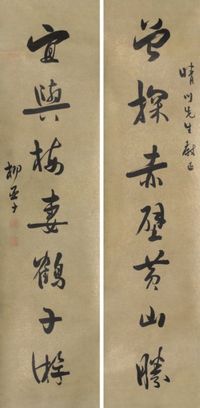 晴川先生敲正
曾探赤壁黄山勝
宜與梅妻鶴子游
柳亞子